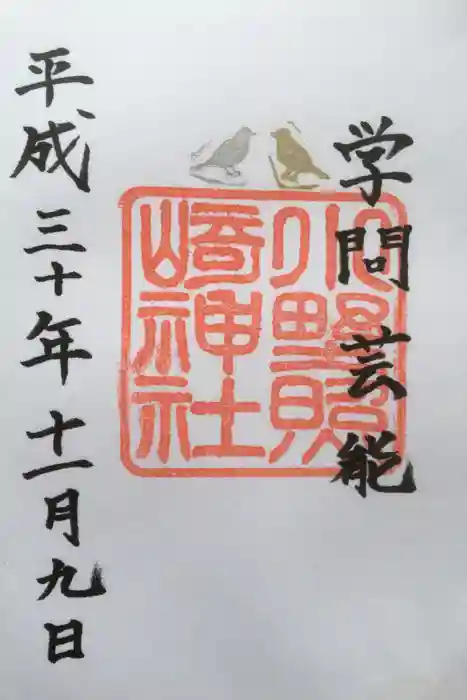 学問芸能
小野照
崎神社
平成三十年十一月九日